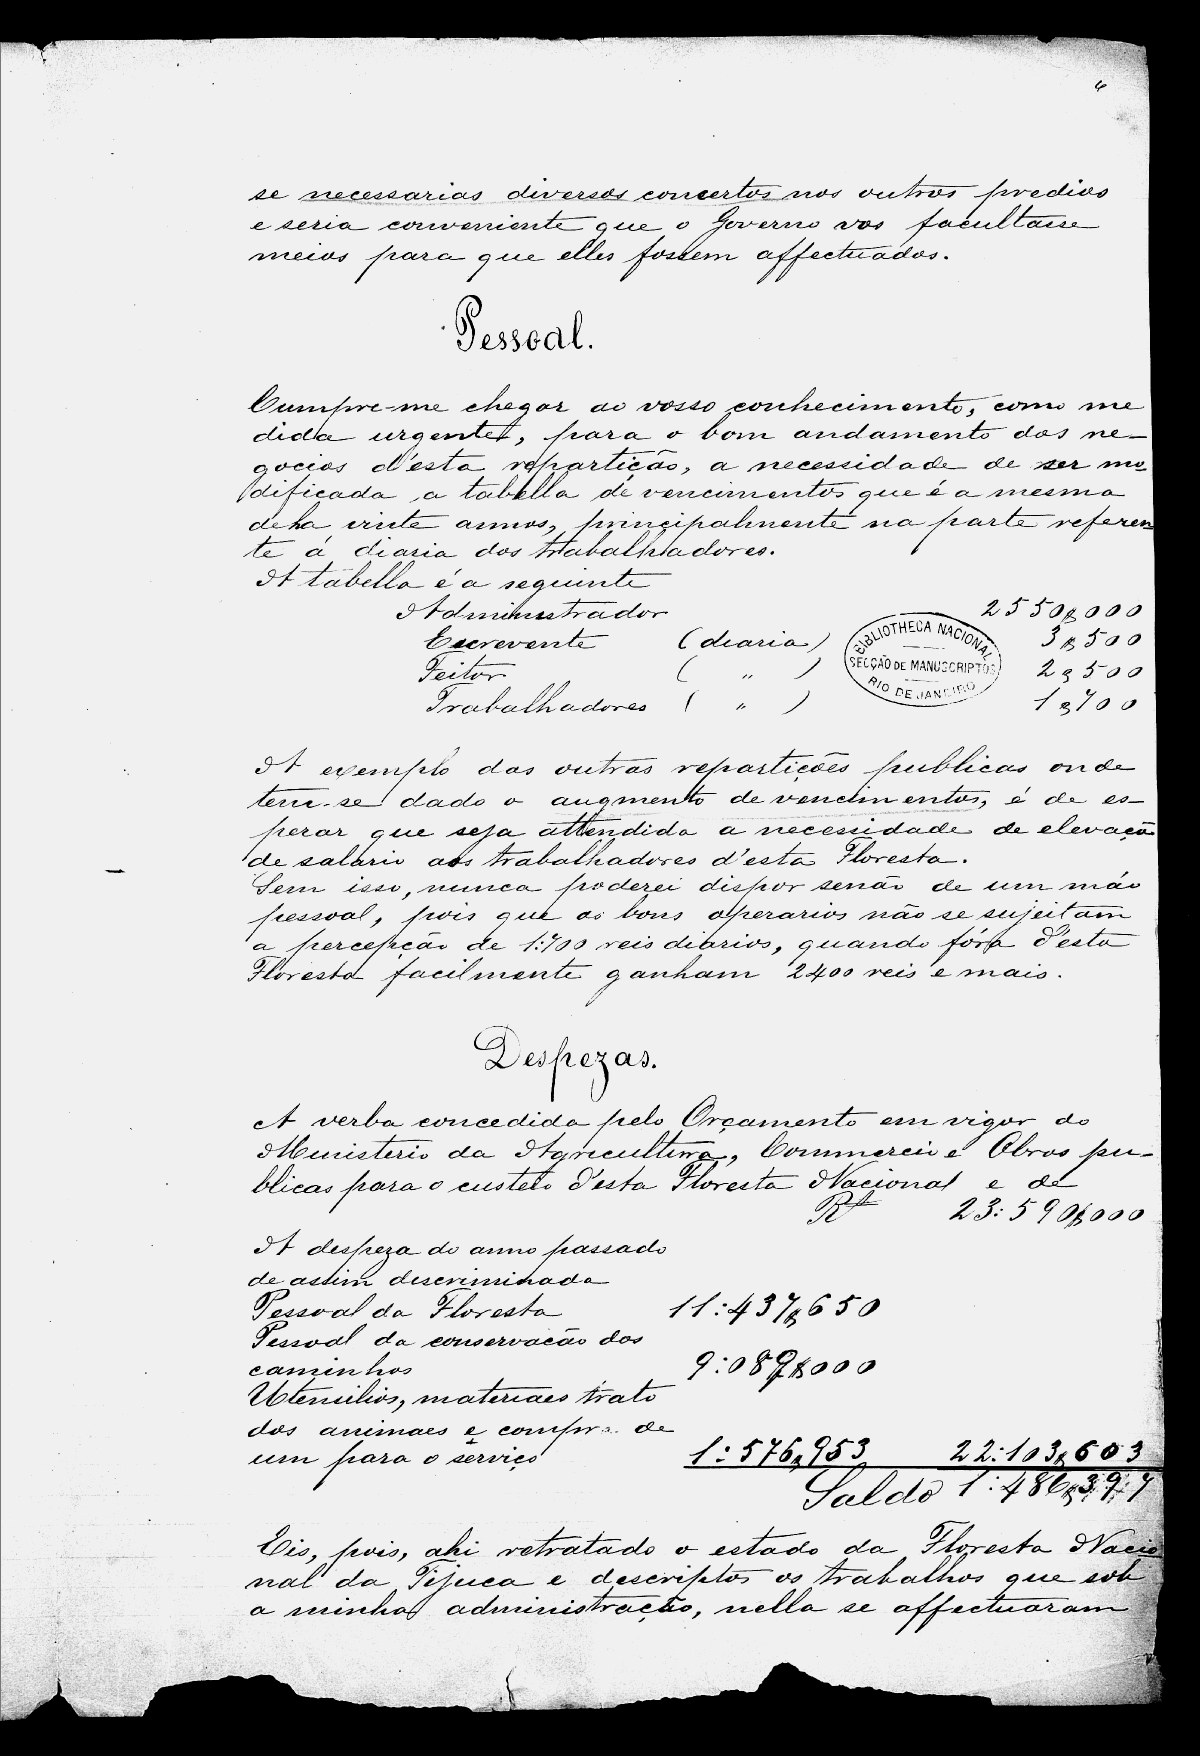 6
se necessarias diversos concertos nos outros predios
e seria conveniente que o Governo vos facultasse
meios para que elles fossem affectuados.
Pessoal.
Cumpre-me chegar ao vosso conhecimento, como me
dida urgente, para o bom andamento dos ne-
gocios d'esta repartição, a necessidade de ser mo-
dificada a tabella de vencimentos que é a mesma
de ha vinte annos, principalmente na parte referen
te á diaria dos trabalhadores.
A tabella é a seguinte
Administrador 2550$000
Escrevente (diaria) 3$500
Feitor ( „ ) 2$500
Trabalhadores ( „ ) 1$700
BIBLIOTHECA NACIONAL
SECÇÃO DE MANUSCRIPTOS
RIO DE JANEIRO
A exemplo das outras repartições publicas onde
tem-se dado o augmento de vencimentos, é de es-
perar que seja attendida a necessidade de elevação
de salario aos trabalhadores d'esta Floresta.
Sem isso, nunca poderei dispor senão de um máo
pessoal, pois que os bons operarios não se sujeitam
a percepção de 1:700 reis diarios, quando fóra d'esta
Floresta facilmente ganham 2400 reis e mais.
Despezas.
A verba concedida pelo Orçamento em vigor do
Ministerio da Agricultura, Commercio e Obras pu-
blicas para o custeio d'esta Floresta Nacional e de
Rs 23:590$000
A despeza do anno passado
de assim descriminada
Pessoal da Floresta 11:437$650
Pessoal da conservacão dos
caminhos 9:089$000
Utensilios, materiaes trato
dos animaes e compra de
um para o serviço 1:576$953 22:103$603
Saldo 1:486$397
Eis, pois, ahi retratado o estado da Floresta Nacio
nal da Tijuca e descriptos os trabalhos que sob
a minha administração, nella se affectuaram